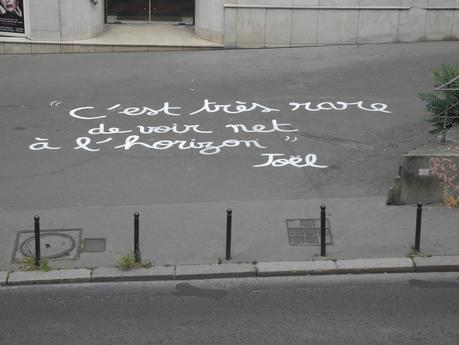 “ C'est très rare
de voir net
à l'horizon ”
Joël